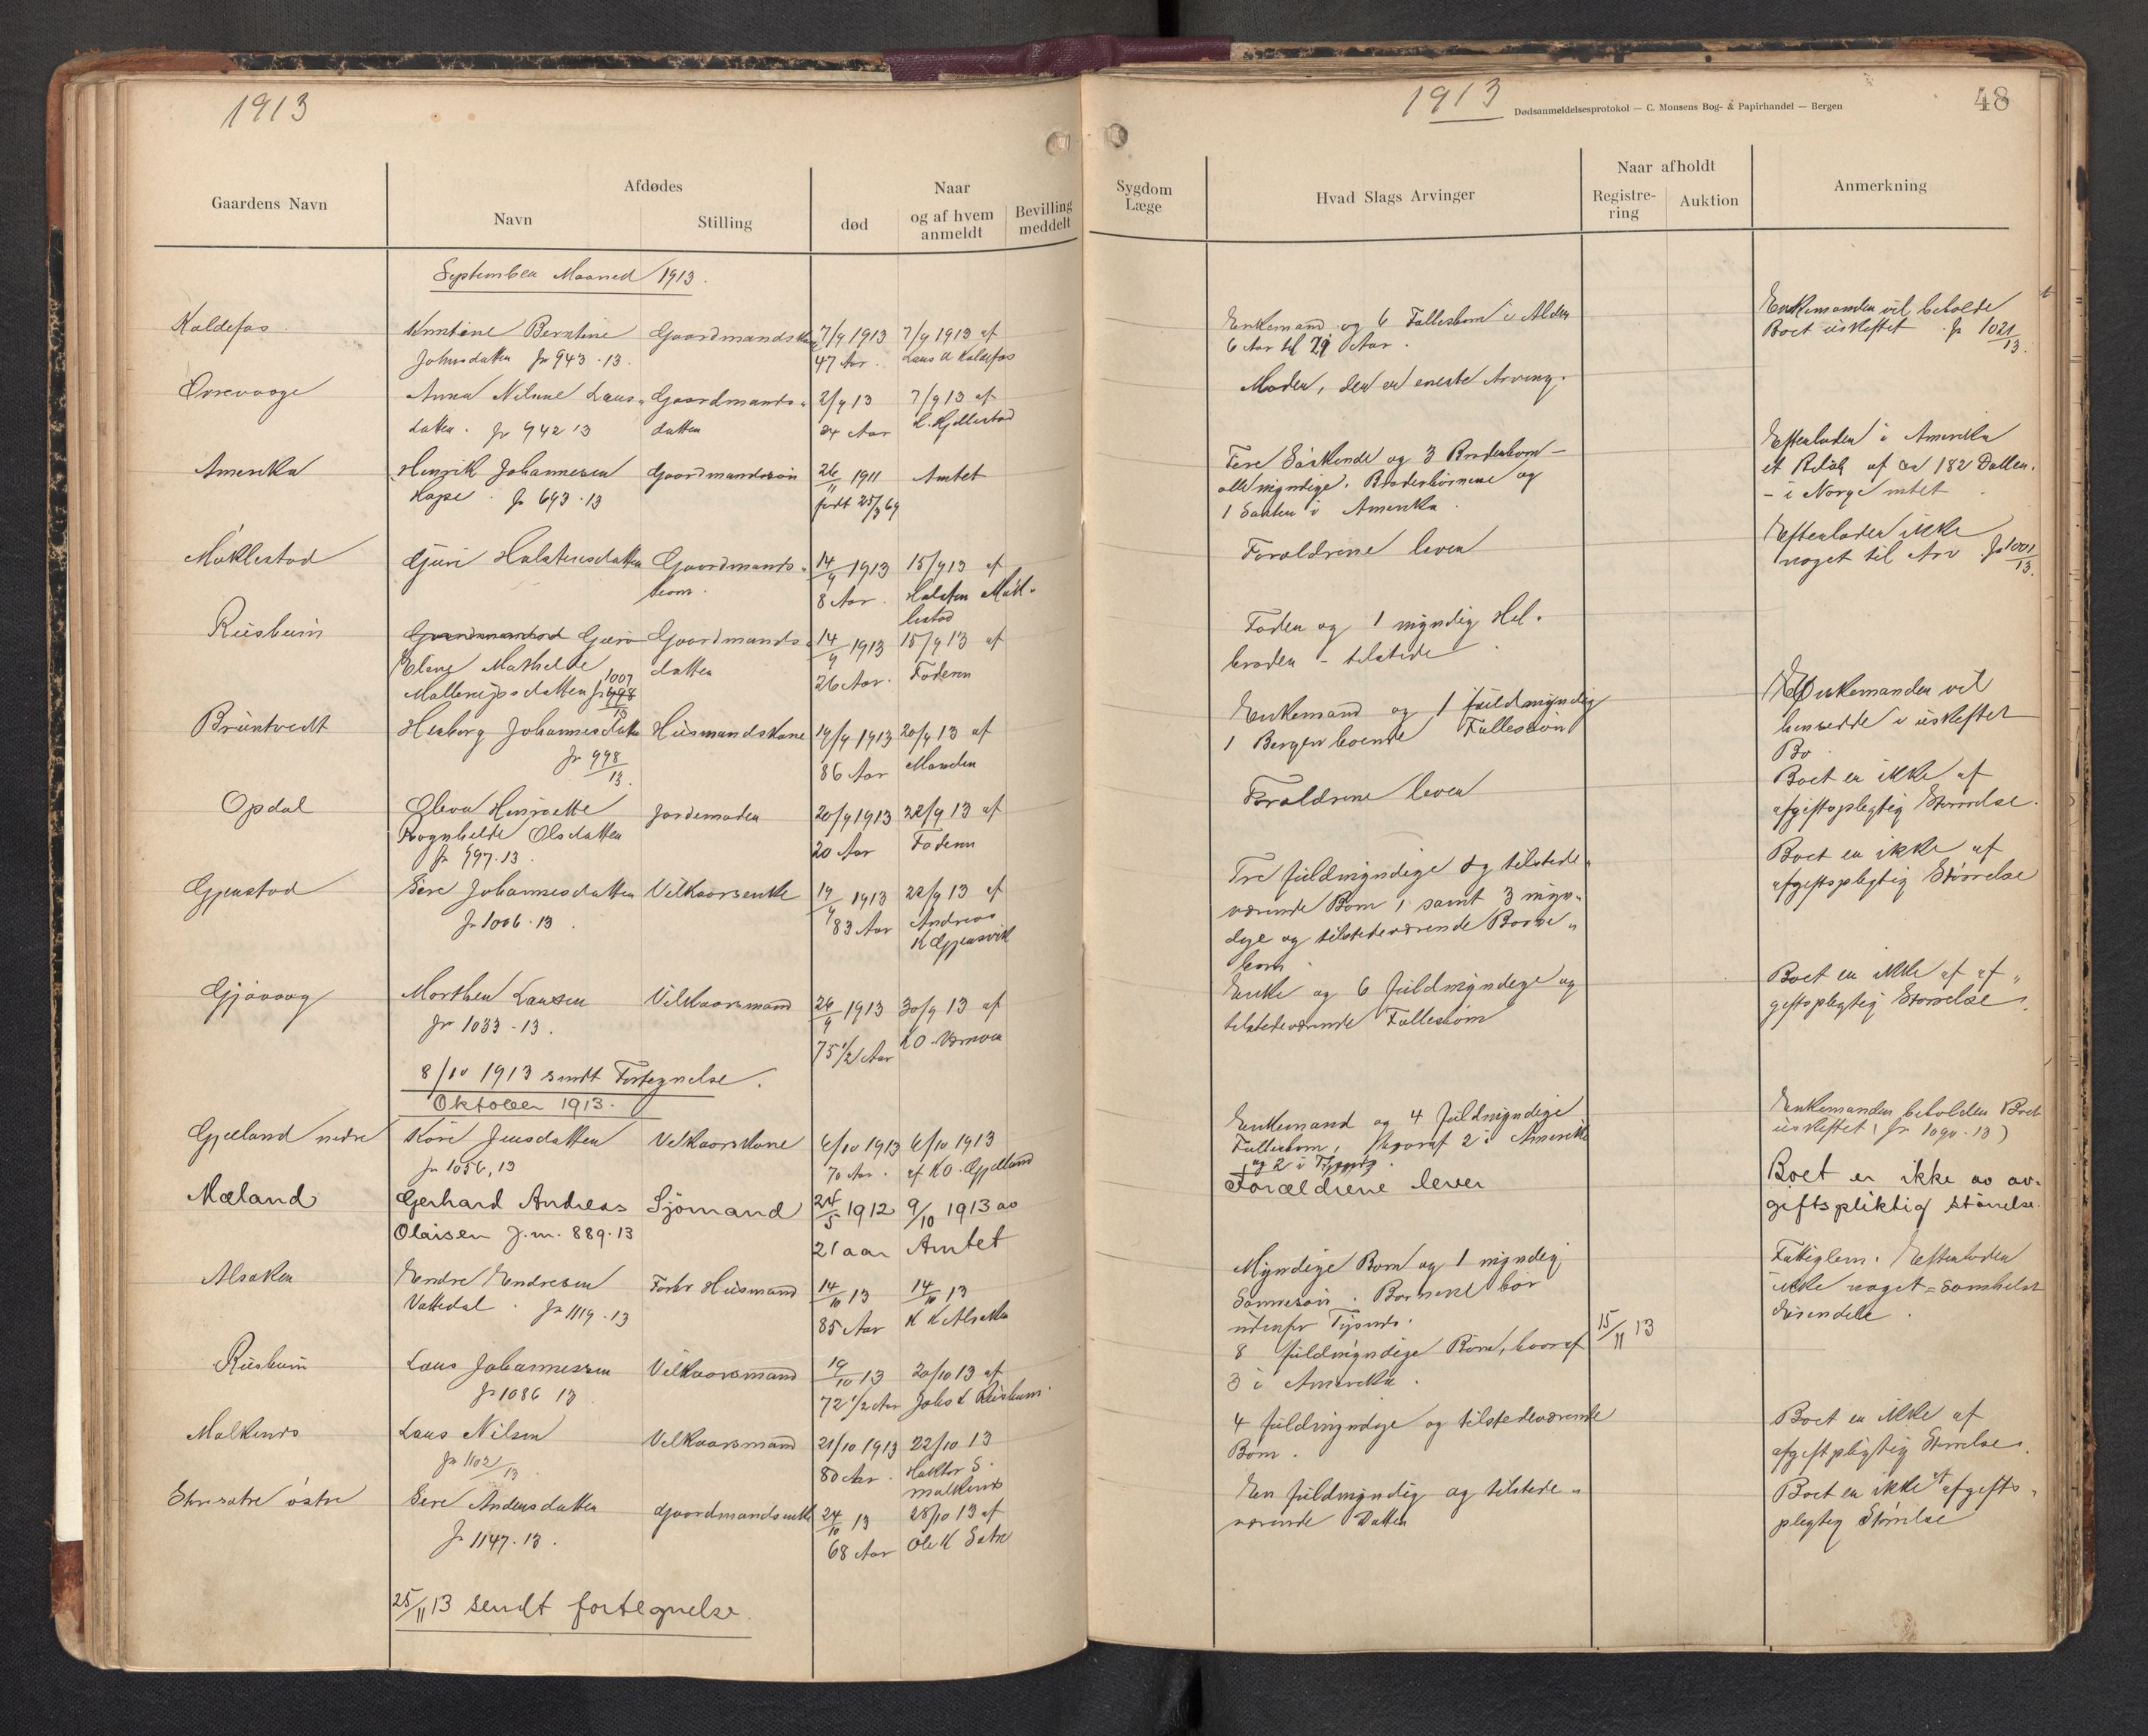 1913
Gaardens Navn
Afdødes
Navn
Stilling
Naar
død
og af hvem anmeldt
Bevilling meddelt
September Maaned 1913.
Koldefos. Berntine Gaardmandskone 7/9 1913 7/9 1913 af
Johnsdatter Jr 943-13. 47 Aar. Lars Koldefos
Anna Lars- Gaardmands- 2/9 13 7/9 13 af
datter. Jr 942 13 datter 24 Aar
Amerika Henrik Johannesen Gaardmandssøn 26/11 1911 Amtet
Jr 693-13 født 25/3 69
Halstensdatter Gaardmands- 14/9 1913 15/9 13 af
barn. 8 Aar. Halsten
Gaardmands- 14/9 1913 15/9 13 af
Mathilde datter 26 Aar. Faderen
1007
Johannesdatter Husmandskone 19/9 1913 20/9 13 af
Jr 998/13. 86 Aar Manden
Opdal Olava Henriette Jordemoder 20/9 1913 22/9 13 af
Rognhilde Olsdatter 20 Aar Faderen
Jr 997-13.
Johannesdatter Vilkaarsenke 19/9 1913 22/9 13 af
Jr 1006-13. 83 Aar Andreas
Gjøvaag Morthen Larsen Vilkaarsmand 26/9 1913 30/9 13 af
Jr 1033-13. 75 1/2 Aar
8/10 1913 sendt Fortegnelse.
Oktober 1913.
Gjelland nedre Jensdatter Vilkaarskone 6/10 1913 6/10 1913
Jr 1056, 13 70 Aar. af K O. Gjelland
Mæland Gerhard Andreas Sjømand 24/5 1912 9/10 1913 av
Olaisen J.nr. 889-13 21 aar Amtet
Alsaker Endre Endresen Forhv Husmand 14/10 13 14/10 13
Vattedal. Jr 1119-13 85 Aar K K Alsaker
Lars Johannessen Vilkaarsmand 19/10 13 20/10 13 af
Jr 1086 13 72 1/2 Aar Johs L
Malkenes Lars Nilsen Vilkaarsmand 21/10 1913 22/10 13
Jr 1102/13. 80 Aar. S.
Malkenes
østre Andersdatter Gaardmandsenke 24/10 13 28/10 13 af
Jr 1147-13. 68 Aar Ole K
25/11 13 sendt fortegnelse.
1913
Dødsanmeldelsesprotokol — C. Monsens Bog- & Papirhandel — Bergen
48
Sygdom
Læge
Hvad Slags Arvinger
Naar afholdt
Registrering
Auktion
Anmerkning
Enkemand og 6 Fællesbørn i Alder
6 Aar til 29 Aar.
Enkemanden vil beholde
Boet uskiftet. Jr 1021/13.
Moder, der er eneste Arving.
Fire Søskende og 3 Broderbørn -
alle myndige. Broderbørnene og
1 Søster i Amerika.
Efterlader i Amerika
et Beløb af ca 182 Doller.
- i Norge intet.
Forældrene lever
Efterlader ikke
noget til Arv Jr 1001/13.
Fader og 1 myndig Hel-
broder - tilstede.
Enkemand og 1 fuldmyndig
i Bergen boende Fællessøn
Enkemanden vil
hensidde i uskiftet
Bo
Forældrene lever
Boet er ikke af
afgiftspligtig Størrelse.
Tre fuldmyndige og tilstede-
værende Børn, samt 3 myn-
dige og tilstedeværende Barne-
børn
Boet er ikke af
afgiftspligtig Størrelse
Enke og 6 fuldmyndige og
tilstedeværende Fællesbørn
Boet er ikke af af-
giftspligtig Størrelse.
Enkemand og 4 fuldmyndige
Fællesbørn, hvoraf 2 i Amerika
og 2 i Tysnes.
Enkemanden beholder Boet
uskiftet, Jr 1090-13)
Forældrene lever
Boet er ikke av av-
giftspliktig størrelse.
Myndige Børn og 1 myndig
Sønnesøn. Børnene bor
udenfor Tysnes.
Fattiglem. Efterlader
ikke noget = somhelst
Eiendele.
8 fuldmyndige Børn, hvoraf
3 i Amerika.
15/11 13
4 fuldmyndige og tilstedeværende
Børn.
Boet er ikke af
afgiftspligtig Størrelse.
En fuldmyndig og tilstede-
værende Datter
Boet er ikke af afgifts-
pligtig Størrelse